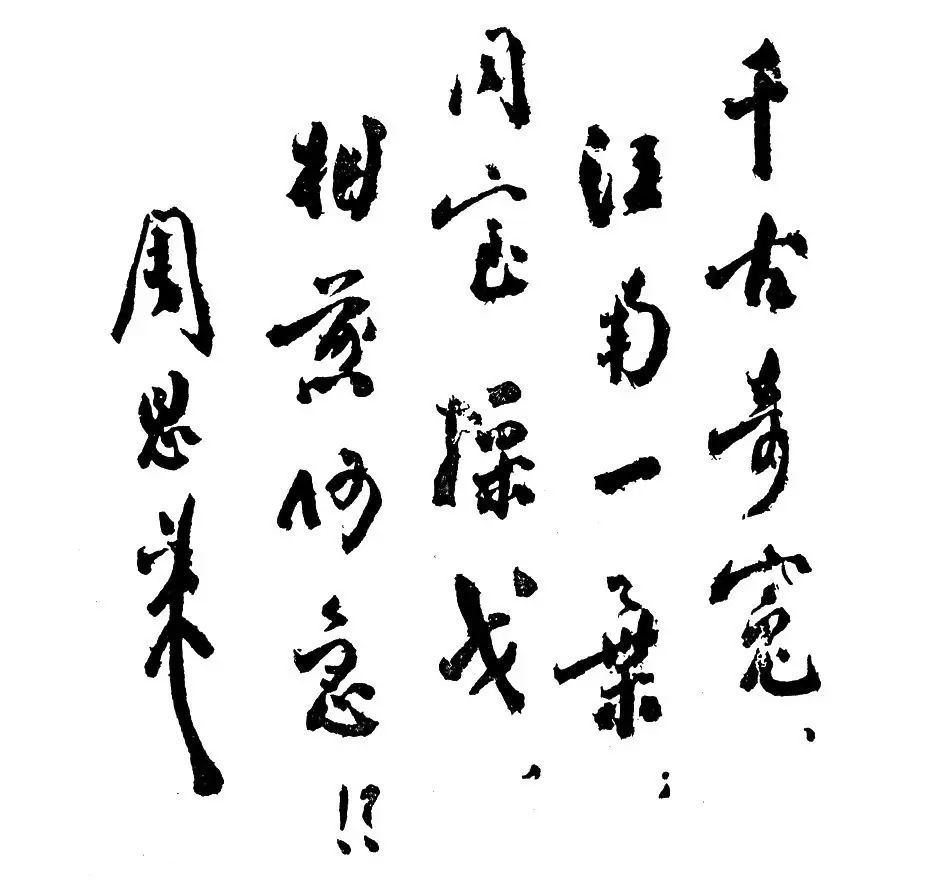 千古奇冤、
江南一葉；
同室操戈、
相煎何急！？
周恩来